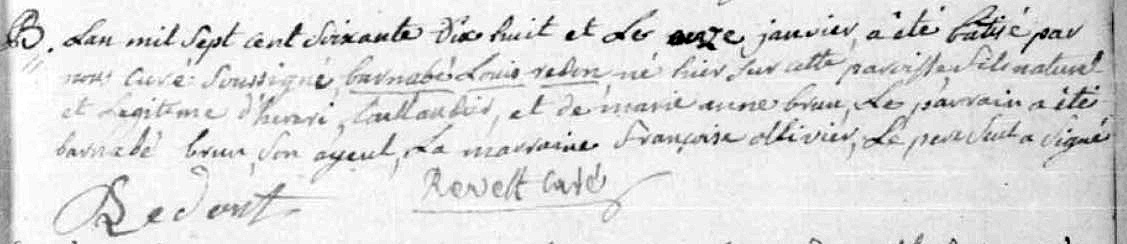 B. Lan mil Sept cent Soixante Dix huit et Le onze janvier, a été batisé par
nous Curé Soussigné, barnabé Louis redon né hier sur cette paroisse fils naturel
et Legitime d'henri, taillandier, et de marie anne brun, Le parrain a été
barnabé brun, Son ayeul, La marraine Françoise ollivier, Le pere Seul a Signé
Redont Revest Curé